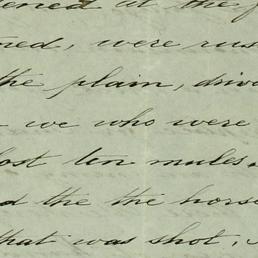 ened at the f
ned, were rus
the plain, driv
we who were
lost ten mules.
d the the horse
that was shot,